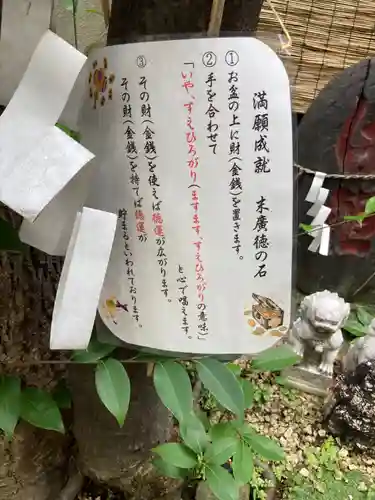 満願成就　末廣徳の石
①お盆の上に財(金銭)を置きます。
②手を合わせて
「いや、すえひろがり(ますます、すえひろがりの意味)」
と心で唱えます。
③その財(金銭)を使えば徳運が広がります。
その財(金銭)を持てば徳運が
貯まるといわれております。